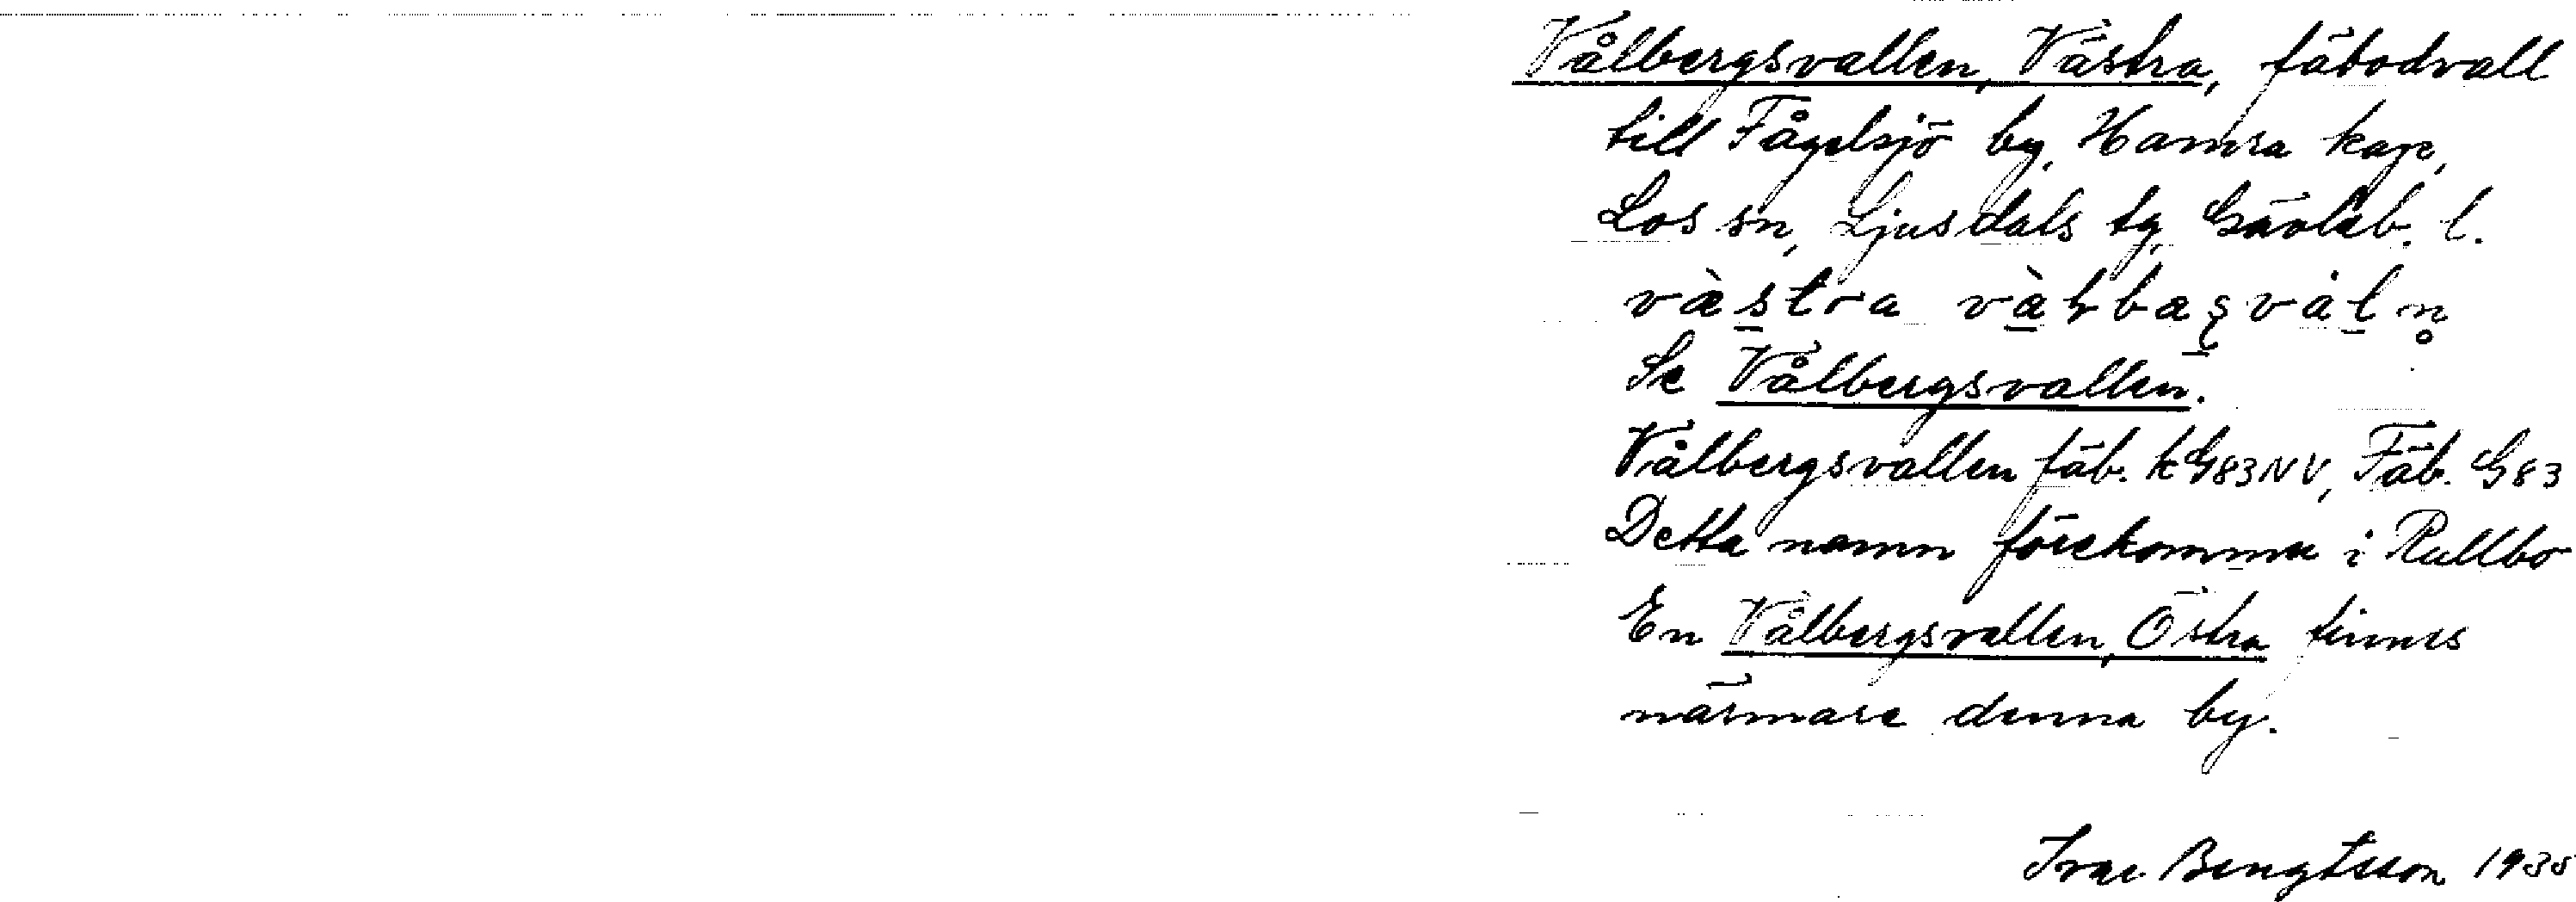 Vålbergsvallen, Västra, fäbodvall
till Fågelsjö by, Hamra kap,
Los sn, Ljusdals tg, Gävleb. l.
västra
Se Vålbergsvallen.
Vålbergsvallen fäb. k G83NV, Fäb. G83
Detta namn förekommer i Rullbo
En Vålbergsvallen, Östra finnes
närmare denna by.
Ivar Bengtsson 1935